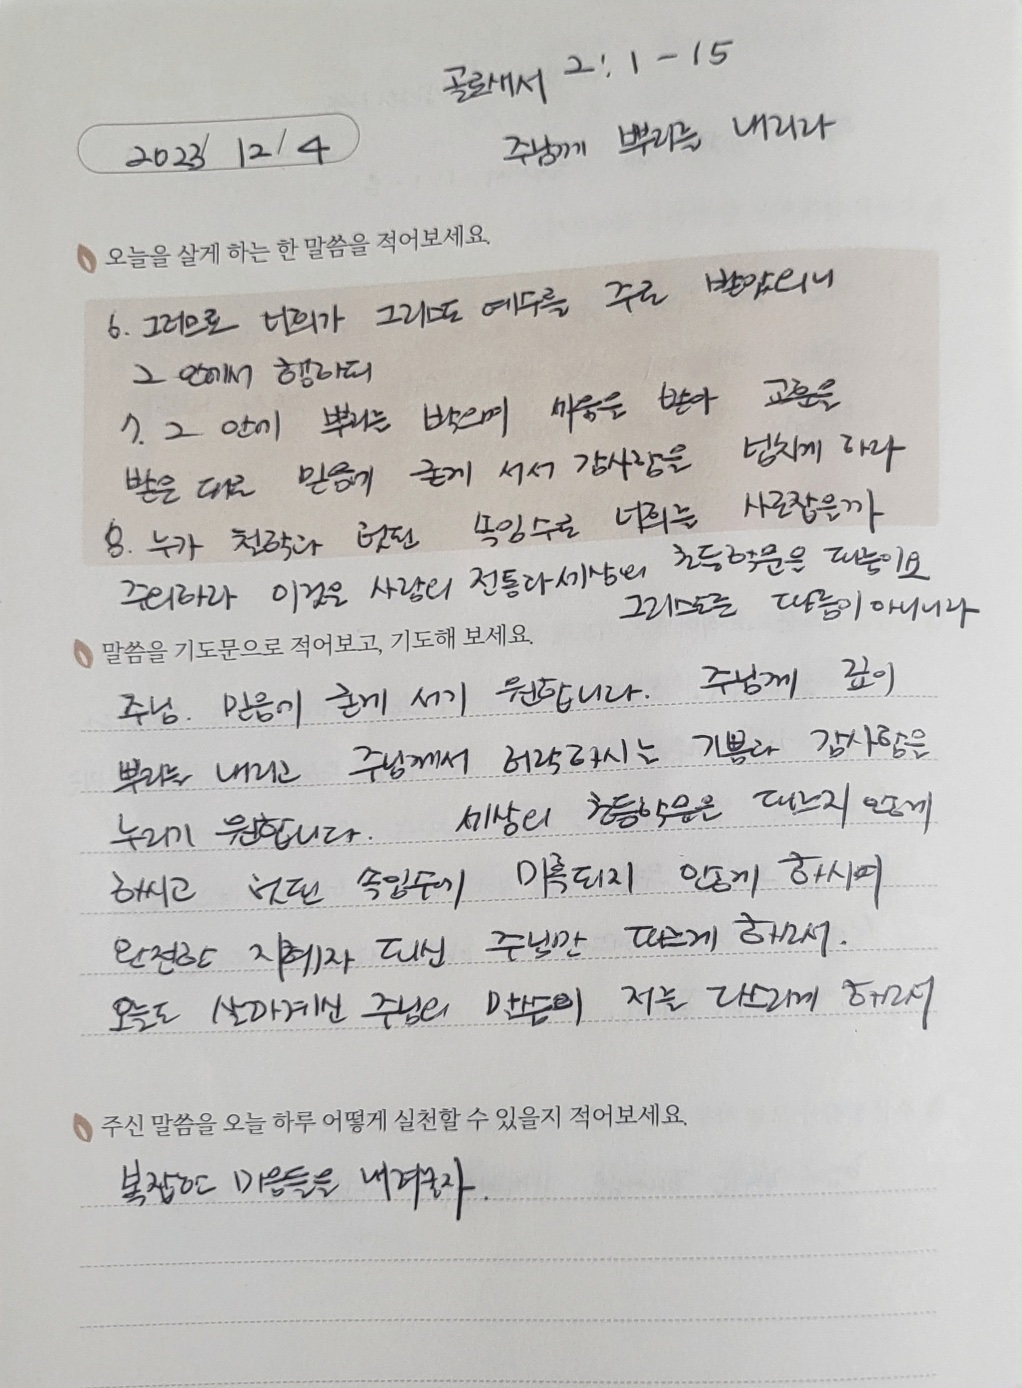 골로새서 2:1-15
2023/12/4
주님께 뿌리를 내리라
오늘을 살게 하는 한 말씀을 적어보세요.
6. 그러므로 너희가 그리스도 예수를 주로 받았으니
그 안에서 행하되
7. 그 안에 뿌리를 박으며 세움을 받아 교훈을
받은 대로 믿음에 굳게 서서 감사함을 넘치게 하라
8. 누가 철학과 헛된 속임수로 너희를 사로잡을까
주의하라 이것은 사람의 전통과 세상의 초등학문을 따름이요
그리스도를 따름이 아니니라
말씀을 기도문으로 적어보고, 기도해 보세요.
주님. 믿음에 굳게 서기 원합니다. 주님께 깊이
뿌리를 내리고 주님께서 허락하시는 기쁨과 감사함을
누리기 원합니다. 세상의 초등학문을 따르지 않게
하시고 헛된 속임수에 미혹되지 않게 하시며
완전한 지혜자 되신 주님만 따르게 하소서.
오늘도 살아계신 주님의 말씀이 저를 다스리게 하소서
주신 말씀을 오늘 하루 어떻게 실천할 수 있을지 적어보세요.
복잡한 마음들을 내려놓자.